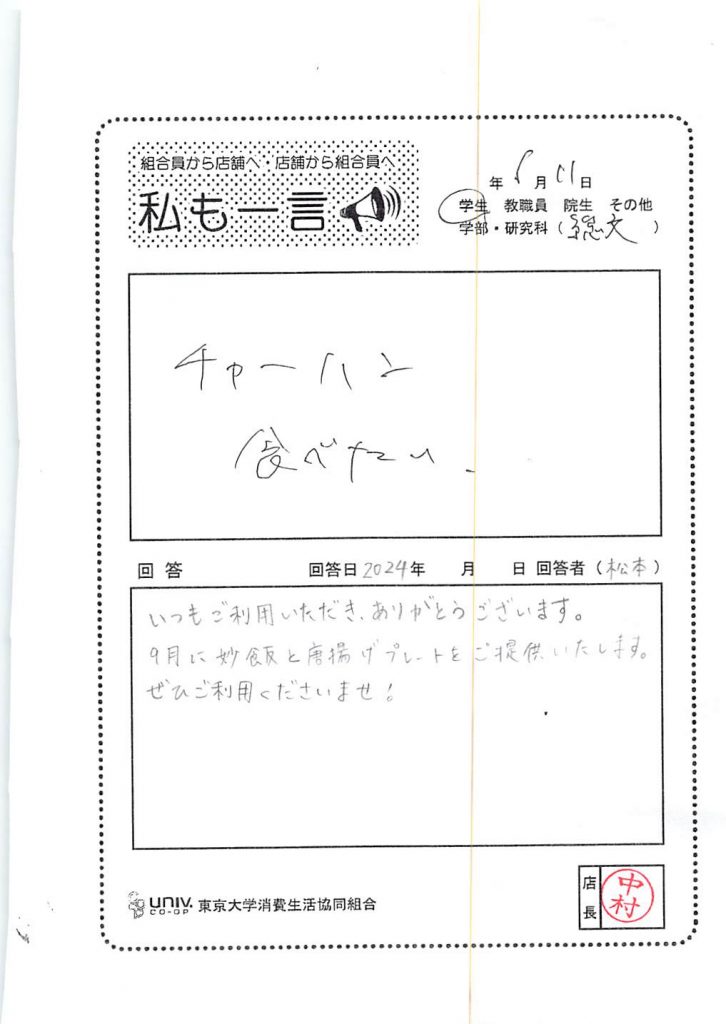 組合員から店舗へ・店舗から組合員へ
私も一言
年 月 11日
学生 教職員 院生 その他
学部・研究科(総文)
チャーハン
食べたい
回答 回答日2024年 月 日 回答者(松本)
いつもご利用いただき、ありがとうございます。
9月に妙飯と唐揚げプレートをご提供いたします。
ぜひご利用くださいませ!
UNIV. CO-OP 東京大学消費生活協同組合
店長 中村